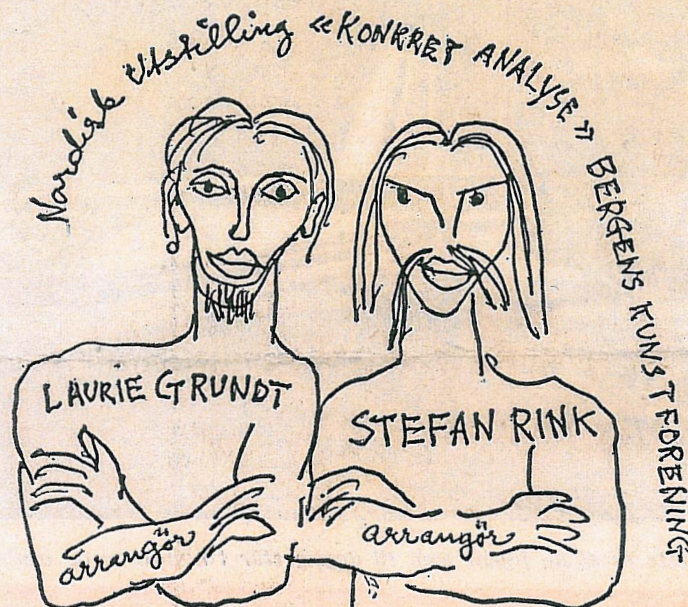 Nordisk Utstilling «KONKRET ANALYSE» BERGENS KUNSTFORENING
LAURIE GRUNDT
STEFAN RINK
arrangör
arrangör